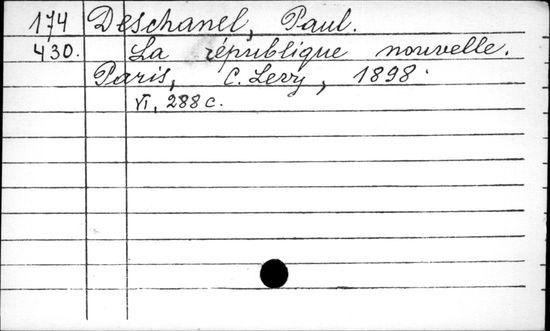 174 Deschanel, Paul.
430. La république nouvelle.
Paris, C. Levy, 1898.
VI, 288 c.